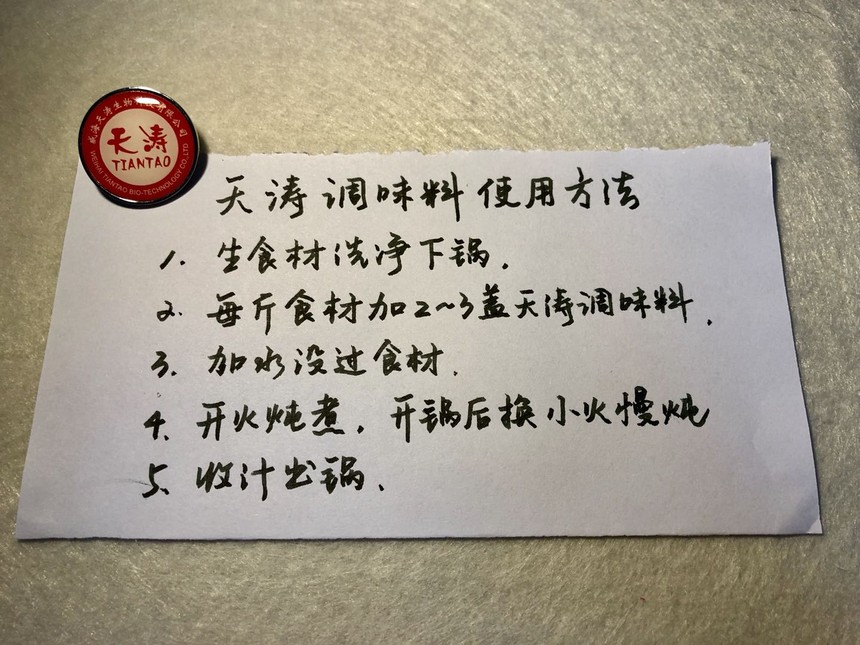 威海天涛生物科技有限公司
天涛
TIANTAO
WEIHAI TIANTAO BIO-TECHNOLOGY CO.,LTD
天涛调味料使用方法
1. 生食材洗净下锅.
2. 每斤食材加2~3盖天涛调味料.
3. 加水没过食材.
4. 开火炖煮, 开锅后换小火慢炖
5. 收汁出锅.